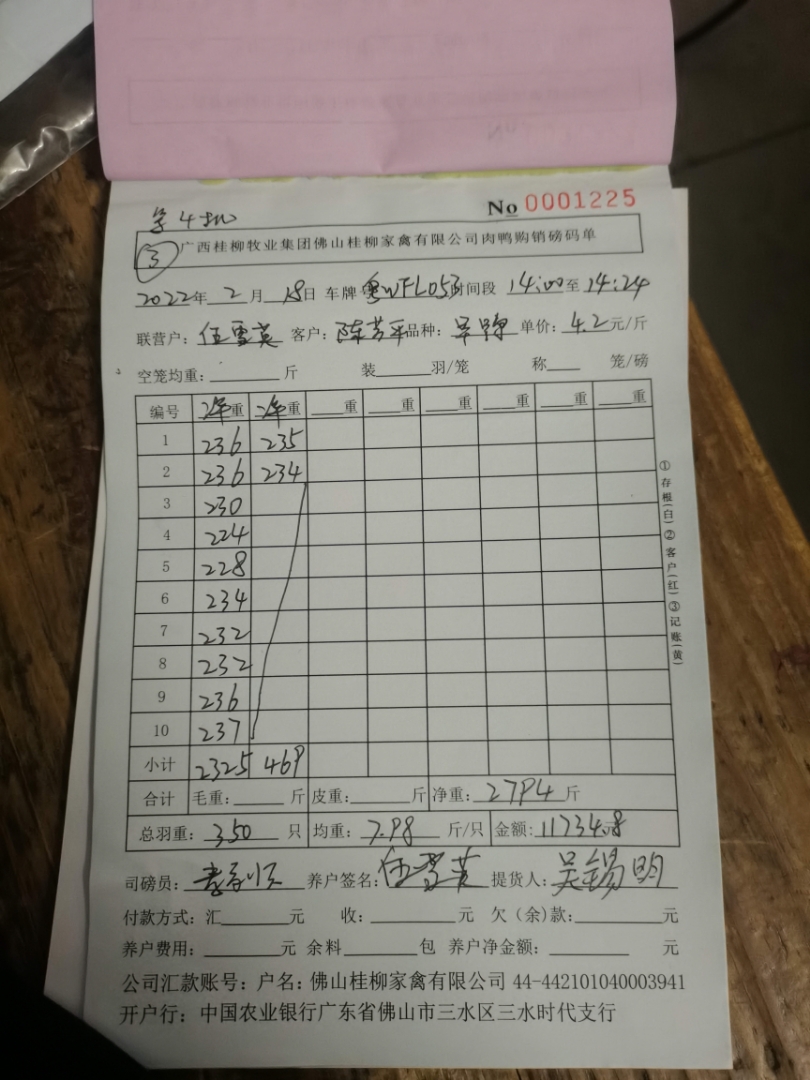 No 0001225
③ 广西桂柳牧业集团佛山桂柳家禽有限公司肉鸭购销磅码单
2022年 2 月 18日 车牌 粤WFL053 时间段 14:00至 14:24
联营户: 伍雪英 客户: 陈芳平 品种: 单价: 4.2 元/斤
空笼均重: 斤 装 羽/笼 称 笼/磅
编号 重 重 重 重 重 重 重 重
1 236 235
2 236 234
3 230
4 224
5 228
6 234
7 232
8 232
9 236
10 237
小计 2325 469
合计 毛重: 斤 皮重: 斤 净重: 2794 斤
总羽重: 350 只 均重: 7.98 斤/只 金额: 11734.8
司磅员: 养户签名: 伍雪英 提货人: 吴锡明
付款方式: 汇 元 收: 元 欠（余）款: 元
养户费用: 元 余料 包 养户净金额: 元
公司汇款账号: 户名: 佛山桂柳家禽有限公司 44-442101040003941
开户行: 中国农业银行广东省佛山市三水区三水时代支行
①存根(白)②客户(红)③记账(黄)